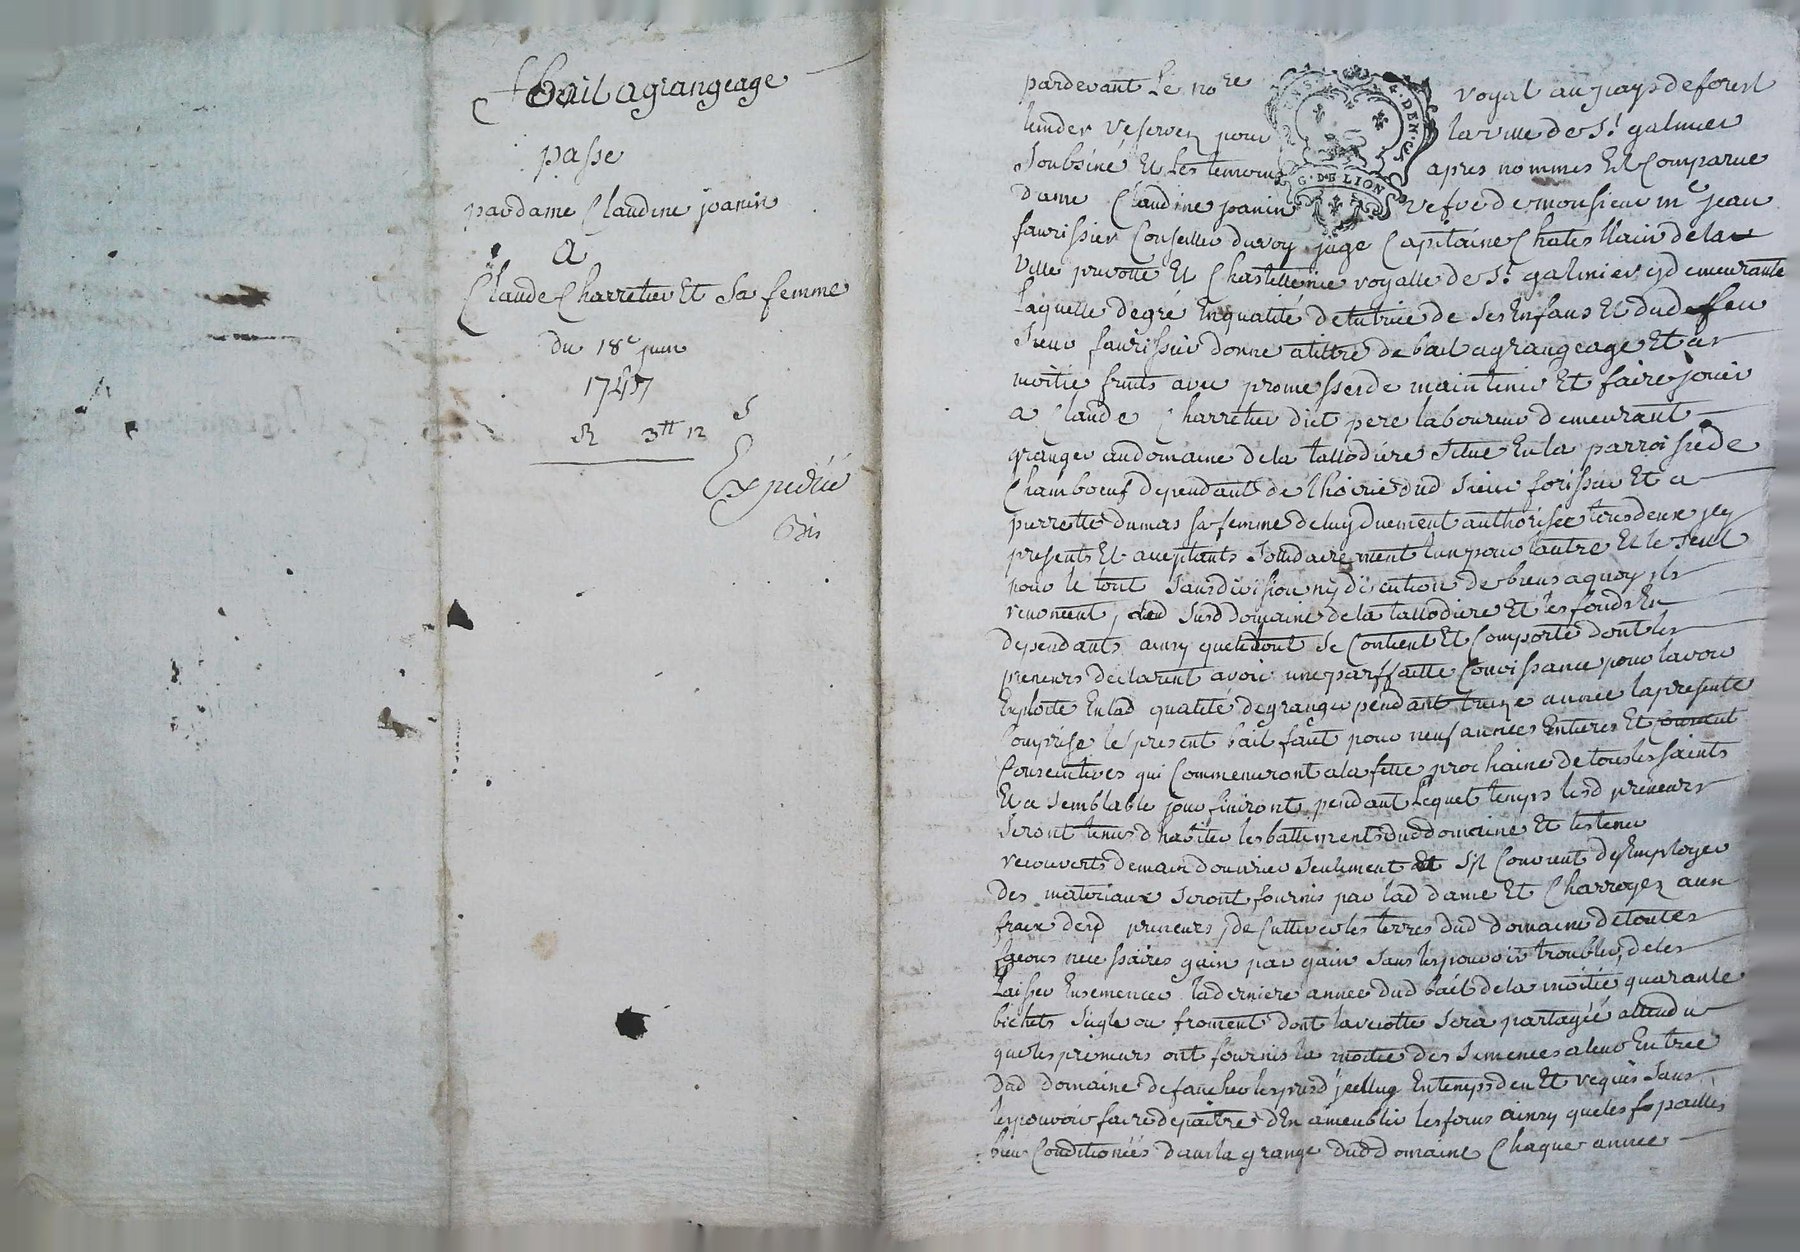 Bail a grangeage
passe
par dame Claudine janin
A
Claude Charretier Et Sa femme
du 18e juin
1747
R 3tt 12 s
Expediée
Bis
pardevant Le nore royal au pays de forest
hinder reserven pour la ville de St galmier
Soubsiné Et Les temoins apres nommes Est Comparue
Dame Claudine janin vefve de monsieur me jean
faurissier Conseiller du roy juge Capitaine Chatellain de la
Ville prevotté Et Chastellenie royalle de St galmier y demeurante
Laquelle de gré En qualité de tutrice de Ses Enfans Et dud feu
Sieur faurissier donne a tittre de bail a grangeage Et a
moitié fruits avec promesse de maintenir Et faire jouir
a Claude Charretier dict pere laboureur demeurant
granger au domaine de la talodiere Situé En la parroisse de
Chambœuf dependant de lhoirie dud Sieur forissier Et a
pierrette dumas sa femme de luy duement authorisée tous deux jcy
presents Et aceptants Solidairement lun pour lautre Et le Seul
pour le tout Sans division ny dicution de biens a quoy ils
renoncent, led Susd domaine de la tallodiere Et les fonds En
dependants ainsy que le tout Se Contient Et Comporte dont les
preneurs declarent avoir une parffaitte Conoissance pour lavoir
Exploité En lad qualité de granger pendant treize année la presente
Comprise le present bail fait pour neuf années Entieres Et
Consecutives qui Commenceront a la fette prochaine de tous les Saints
Et a Semblable jour finiront, pendant Lequel temps lesd preneurs
Seront tenus dhabiter les battiments dud domaine Et les tenir
recouverts de main douvrier Seulement Et Sil Convient dEmployer
Des materiaux Seront fournis par lad dame Et Charroyez aux
fraix desd preneurs, de Cultiver les terres dud domaine de toutes
facons necessaires gain par gain Sans les pouvoir troubler, de les
Laisser Ensemencer la derniere année dud bail de la moitié quarante
bichets Seigle ou froment dont la recolte Sera partagée attendu
que les preneurs ont fournis la moitié des Semences a leur Entrée
Dud domaine de faucher les preds jcelluy En temps deu Et requis Sans
les pouvoir faire depaitre dEn ameublir les foins ainsy que les pailles
bien Conditionées dans la grange dud domaine Chaque année
G. DE LION